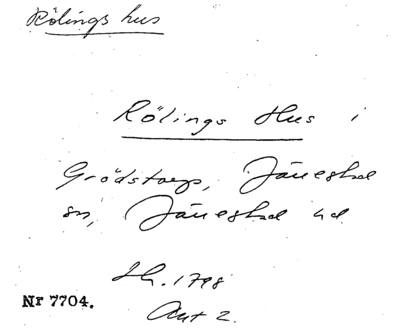 Rölings hus
Rölings Hus i
Grödstorp, Jäneslad
sn, Jäneslad hd
Lh. 1798
Akt 2.
Nr 7704.